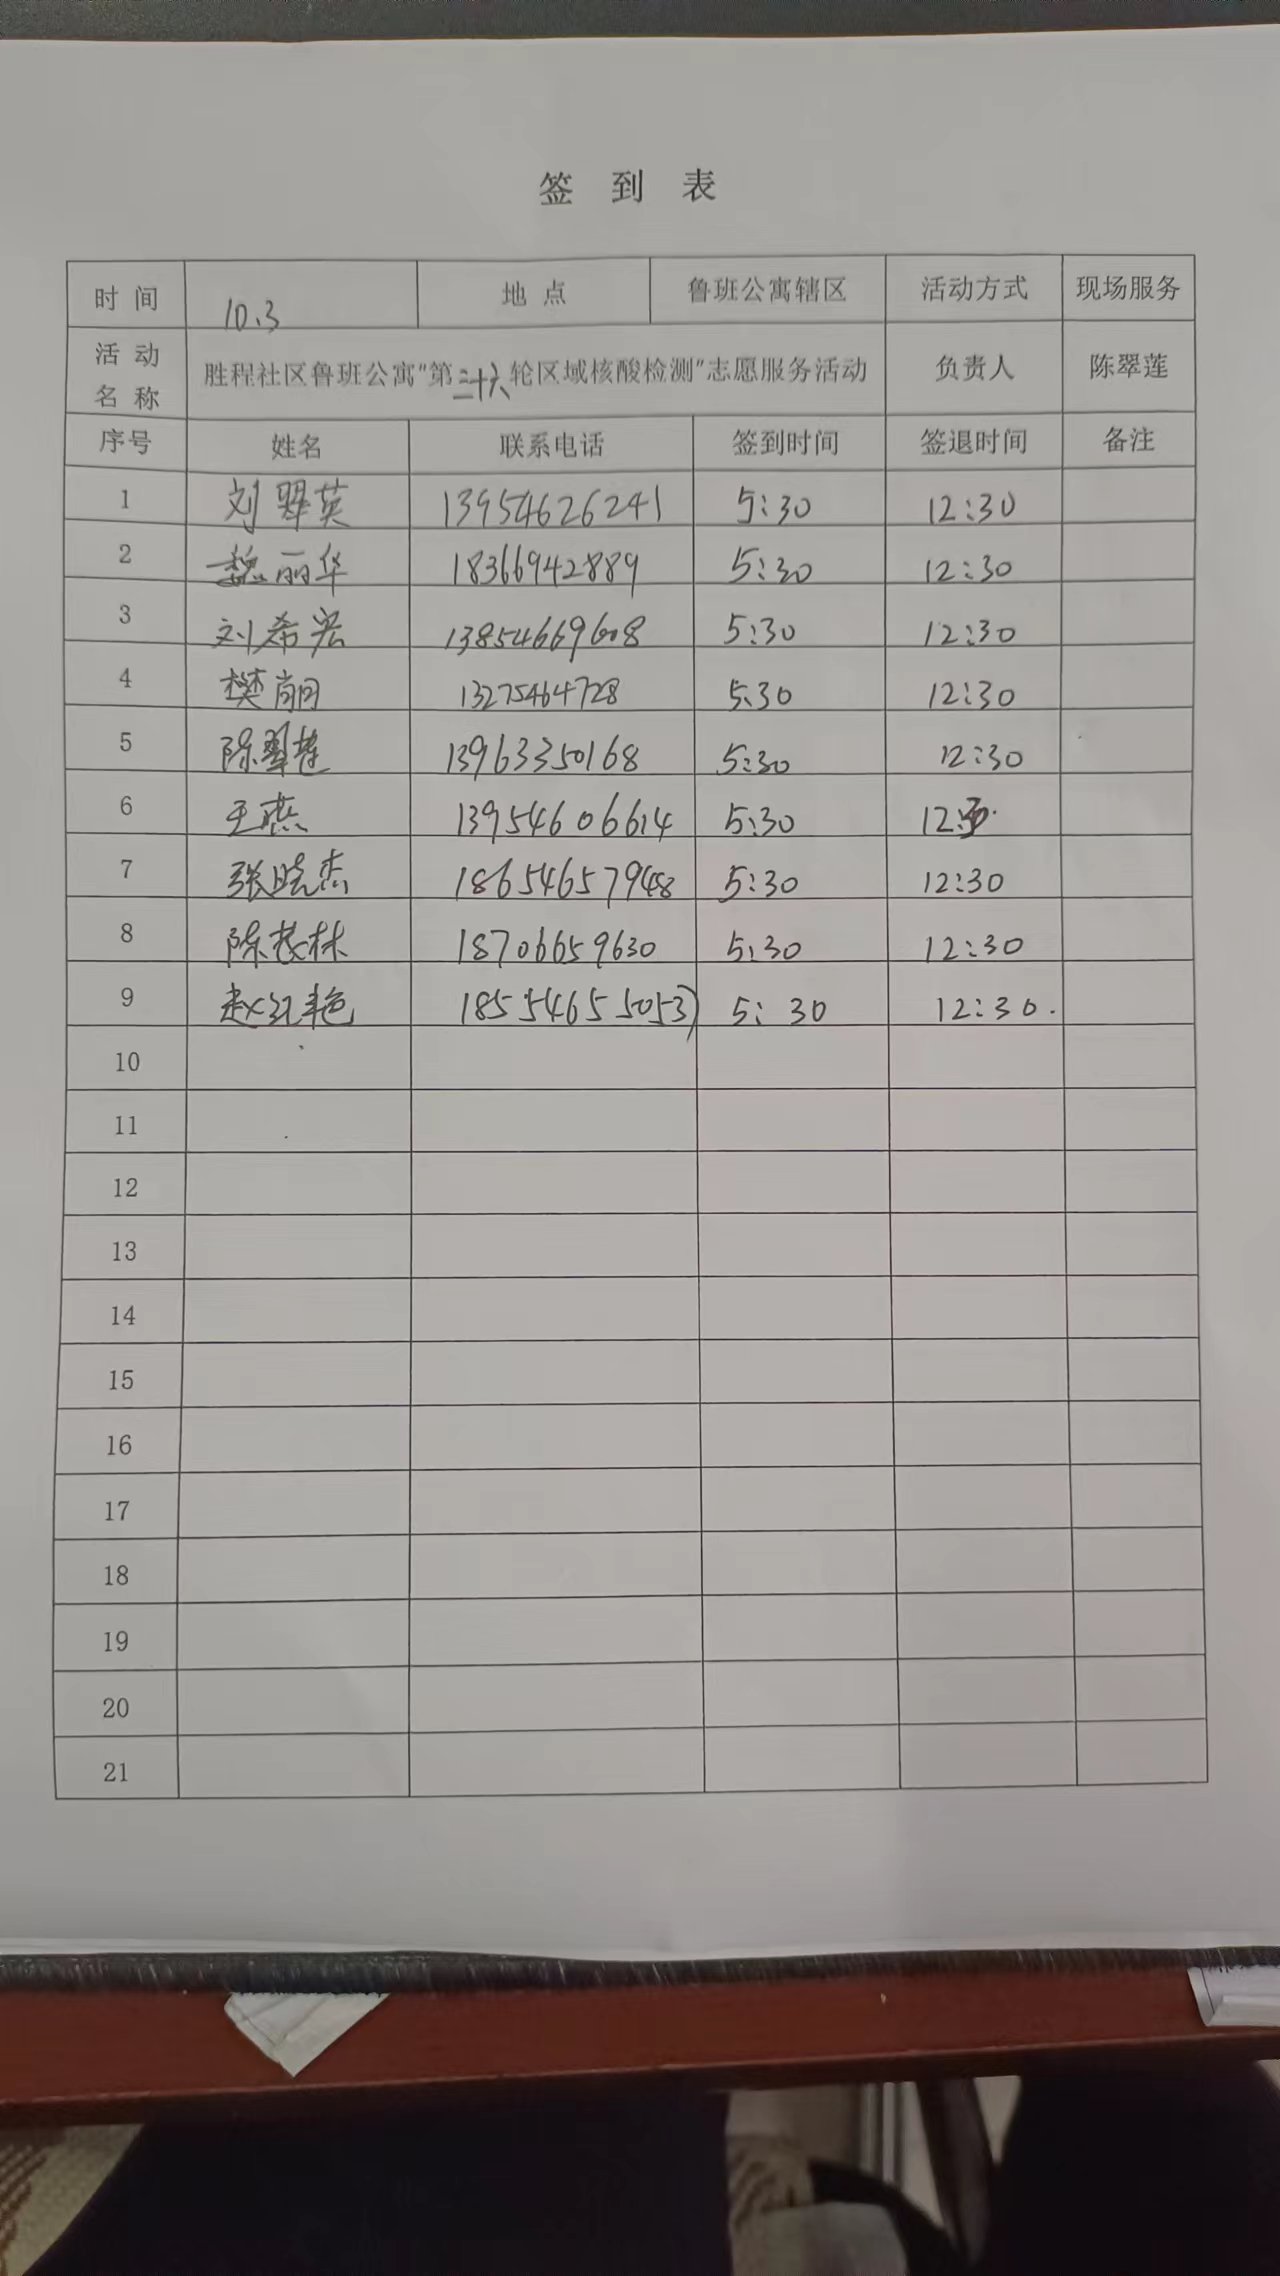 签 到 表
时 间 10.3 地 点 鲁班公寓辖区 活动方式 现场服务
活 动 名 称 胜程社区鲁班公寓“第二十六轮区域核酸检测”志愿服务活动 负责人 陈翠莲
序号 姓名 联系电话 签到时间 签退时间 备注
1 刘翠英 13954626241 5:30 12:30
2 魏丽华 18366942889 5:30 12:30
3 刘希宏 13854669608 5:30 12:30
4 樊丽 13275464728 5:30 12:30
5 陈翠莲 13963350168 5:30 12:30
6 王燕 13954606614 5:30
7 张晓杰 18654657948 5:30 12:30
8 陈茂林 18706659630 5:30 12:30
9 赵红艳 18554655053 5:30 12:30.
10
11
12
13
14
15
16
17
18
19
20
21